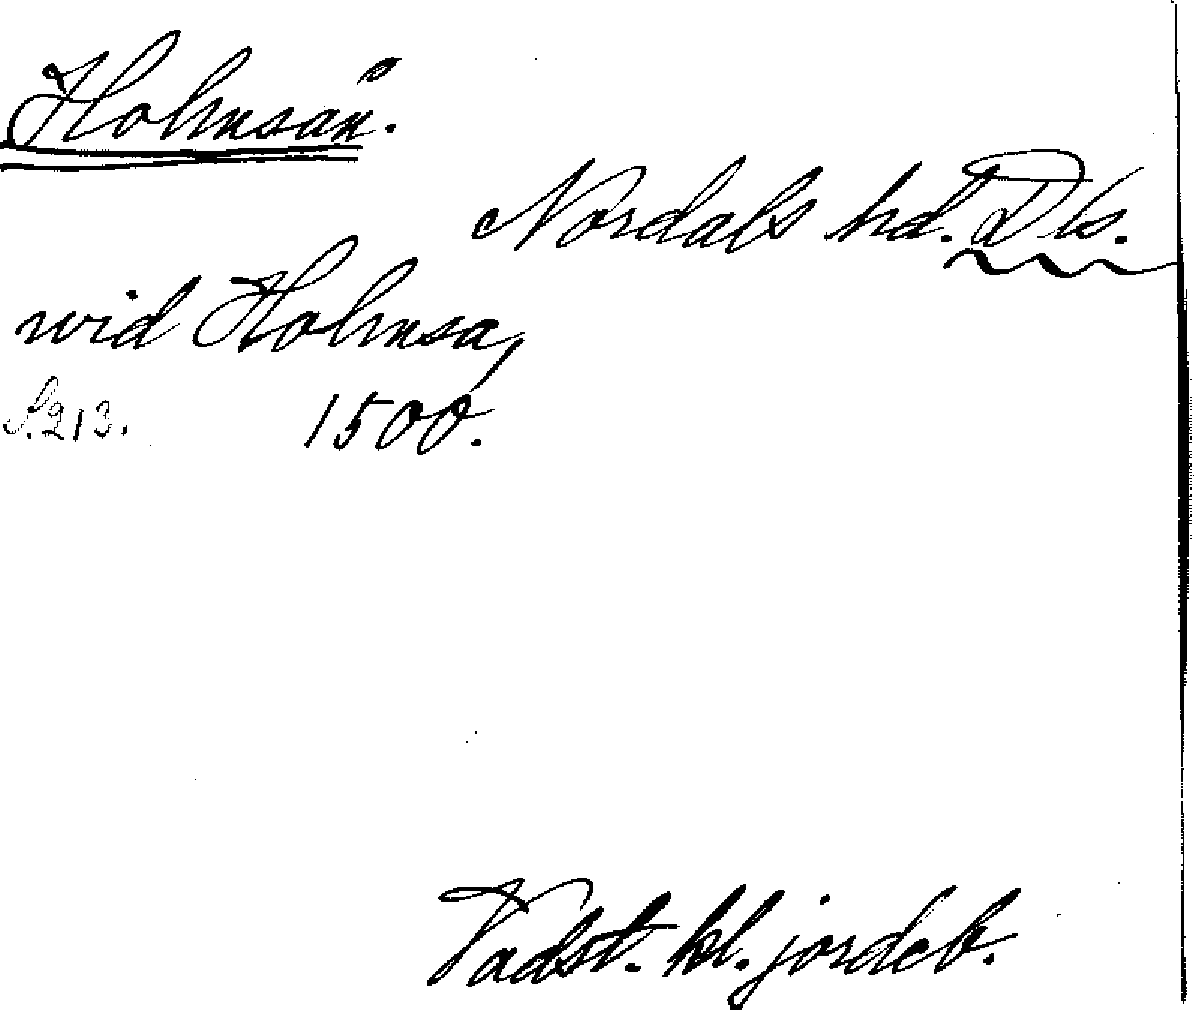 Holmsån.
Nordals hd. Dls.
wid Holmsa,
S. 213. 1500.
Vadst. kl. jordeb.